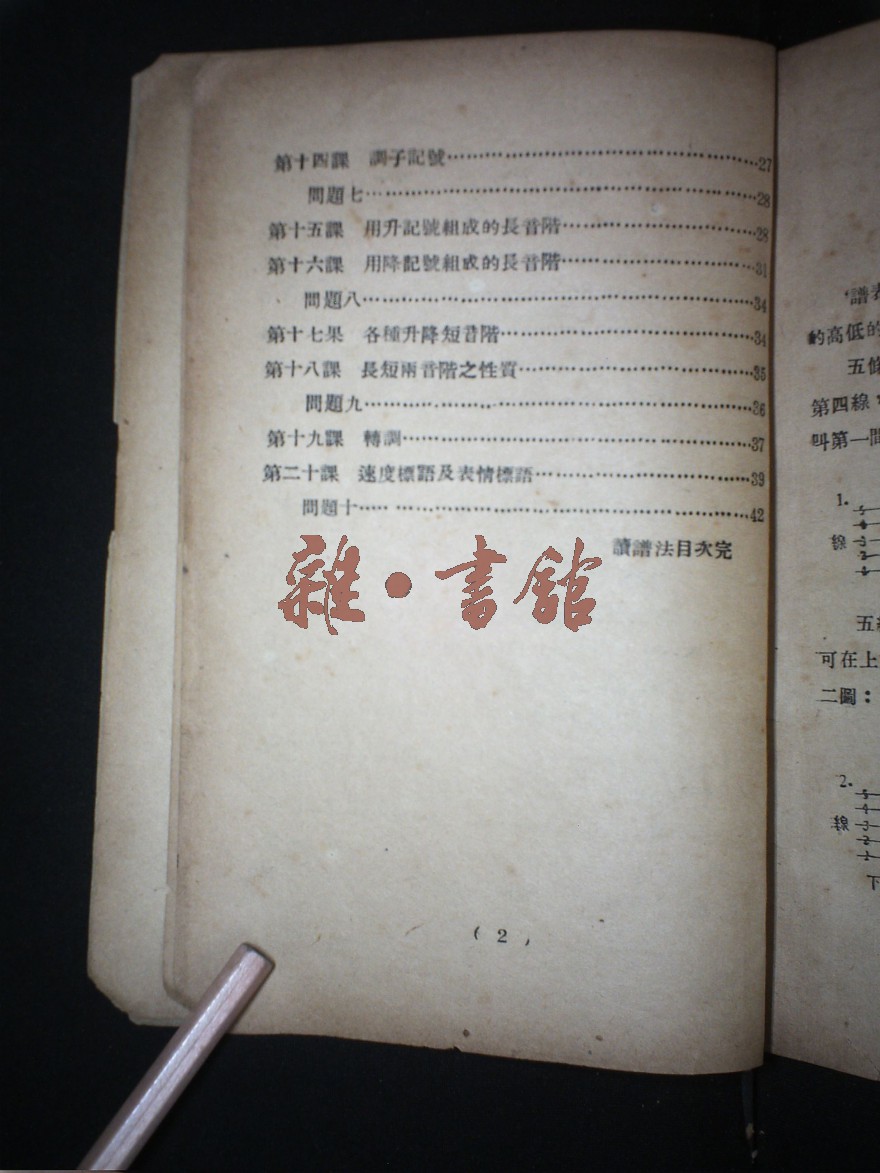 第十四課 調子記號……27
問題七……28
第十五課 用升記號組成的長音階……28
第十六課 用降記號組成的長音階……31
問題八……34
第十七果 各種升降短音階……34
第十八課 長短兩音階之性質……35
問題九……36
第十九課 轉調……37
第二十課 速度標語及表情標語……39
問題十……42
讀譜法目次完
雜·書館
(2)
譜表
的高低的
五條
第四線，
叫第一間
1.
5
4
線 3
2
1
五線
可在上
二圖：
2.
5
4
線 3
2
1
下